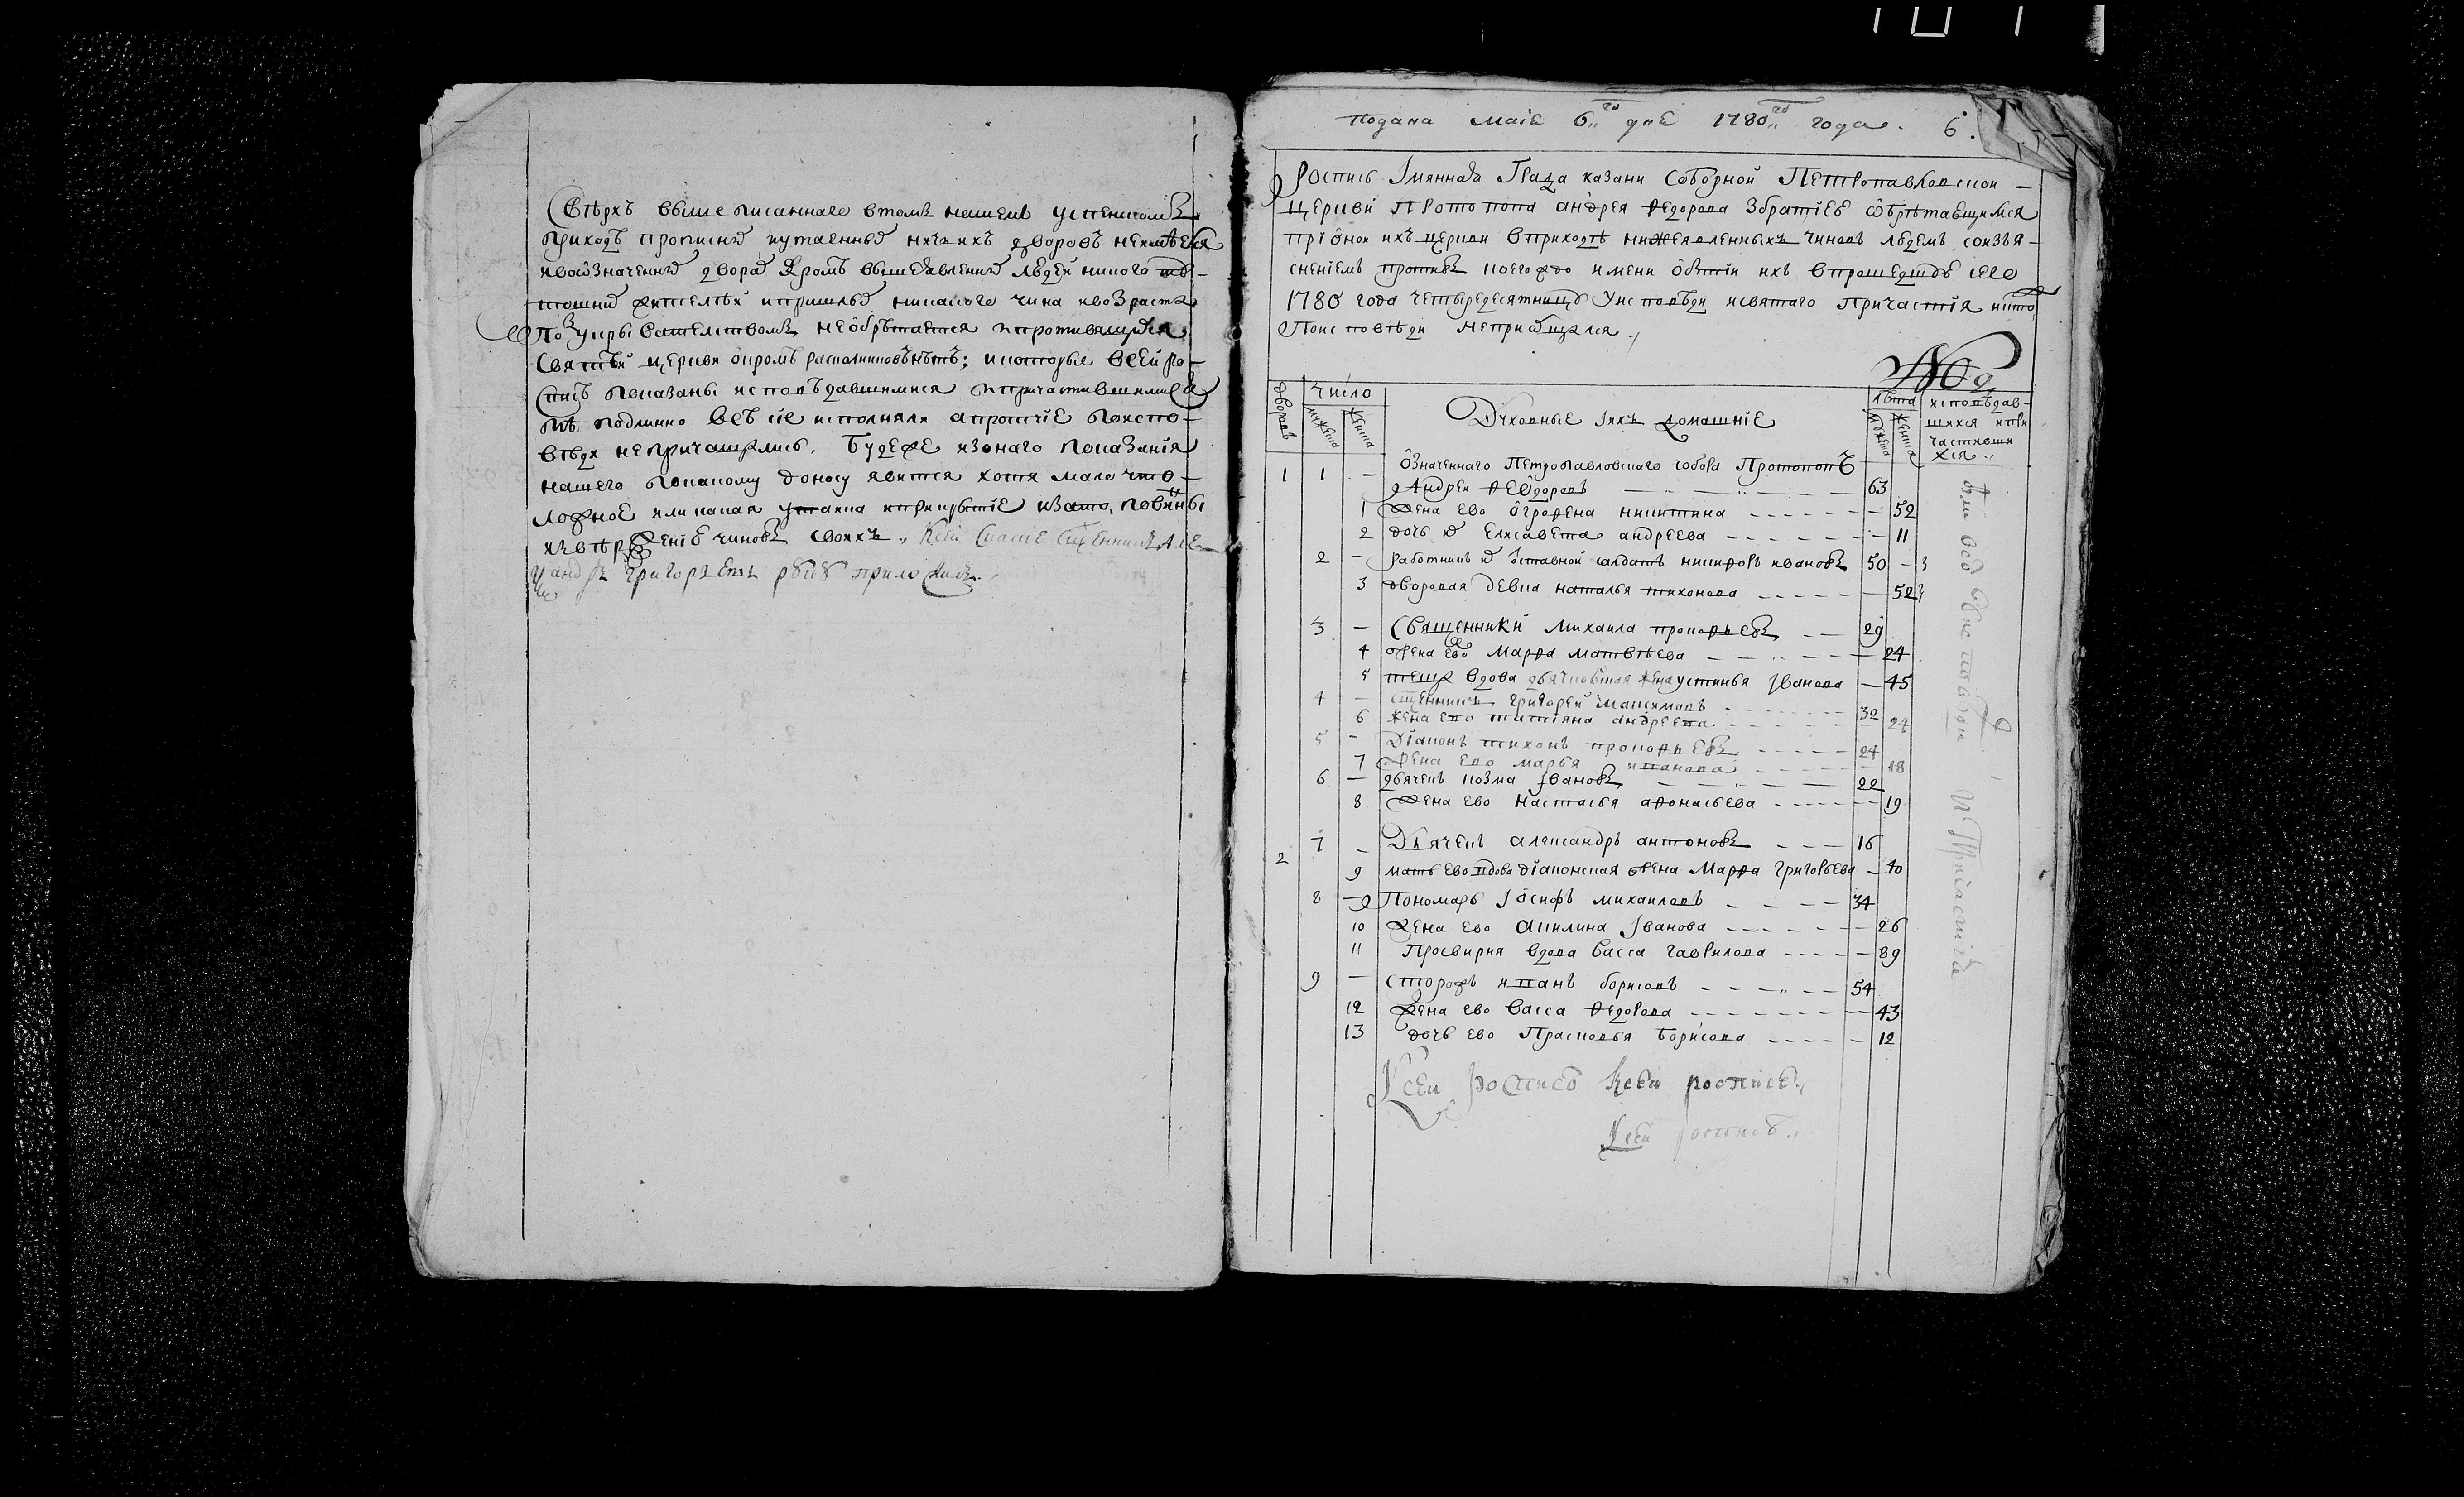 Сверхъ выше писаннаго втомъ нашемъ успенскомъ
приходѣ прописныхъ иутаенныхъ ничьихъ дворовъ неимѣется
ивоозначенныхъ дворахъ кромѣ вышеявленныхъ людей никого
тошнихъ жителѣй ипришлыхъ никакого чина ивозраста
неóбрѣтается ипротивящихся
святѣй церкви окромѣ раскольниковъ нѣтъ; икоторые всей ро-
списѣ показаны исповѣдавшимися ипричастившимися
тѣ подлинно всѣ сіе исполняли апротчіе поиспо-
вѣди непричащались. Будеже изонаго показанія
нашего покакому доносу явится хотя мало что
ложное или какая утайка иприкрытіе изато повинны
изверженію чиновъ своихъ., Ксей
Григорьевъ руку приложилъ.
подана маіе 6 го дня 1780 го года. 6.
Роспись Имянная Града казани Соборной Петропавловской –
церкви Протопопа андрея Федорова Збратіею обрѣтающимся
пріоной ихъ церкви вприходѣ нижеявленныхъ чиновъ людемъ соизъя-
сненіемъ противъ коегождо имени óбытіи ихъ впрошедшую сего
1780 года четыредесятницу Уисповѣди исвятаго причастія икто
Поисповѣди непріобщался.,
Дворовъ число Духовные Iихъ домашніе лѣта исповѣдав-
мужеска женска мужеска женска шихся ипри
частивши
хся.,
1 1 – óзначеннаго Петропавловскаго собора Протопопъ
Андрей Феóдоровъ 63
1 Жена ево óграфена никитина 52
2 дочь ихъ Елисавета андреева 11
2 – работникъ ихъ óтставной салдатъ никифоръ ивановъ 50 –
3 дворовая девка наталья тихонова 52
3 – Священники Михаила прокофьевъ 29
4 жена ево Марфа матвѣева 24
5 теща вдова дьячковская жена устинья Iванова 45
4 – Сщенникъ Григорей Максимовъ 32
6 жена ево татіяна андреева 24
5 – Діаконъ тихонъ прокофьевъ 24
7 Жена ево марья иванова 18
6 – дьячекъ козма Iвановъ 22
8 Жена ево настасья афонасьева 19
2 7 – Дьячекъ александръ антоновъ 16
9 мать ево вдова діаконская жена Марфа григорьева 40
8 – Пономарь Iосифъ михаиловъ 34
10 Жена ево Акилина Iванова 26
11 Просвирня вдова васса гаврилова 89
9 – сторожъ иванъ борисовъ 54
12 Жена ево васса федорова 43
13 дочь ево Прасковья борисова 12
Ксей росписѣ Ксей росписѣ.,
Ксей росписѣ.,
и Причастія